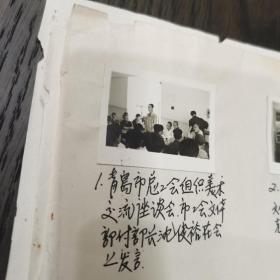 1.青島市总工会组织美术
交流座谈会.市工会文体
部付部长池俊裕在会
上发言.
2.